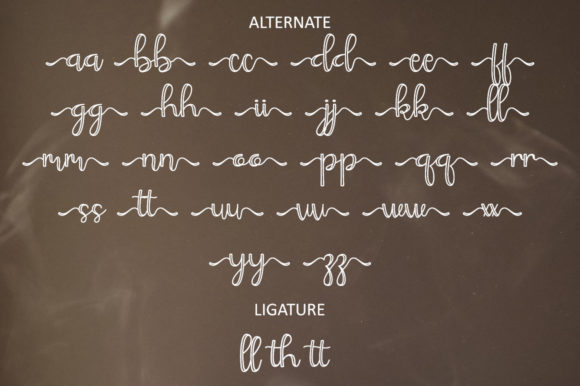 ALTERNATE
aa bb cc dd ee ff
gg hh ii jj kk ll
mm nn oo pp qq rr
ss tt uu vv ww xx
yy zz
LIGATURE
ll th tt